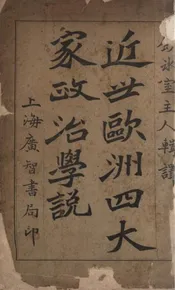 冰室主人輯譯
近世歐洲四大
家政治學説
上海廣智書局印